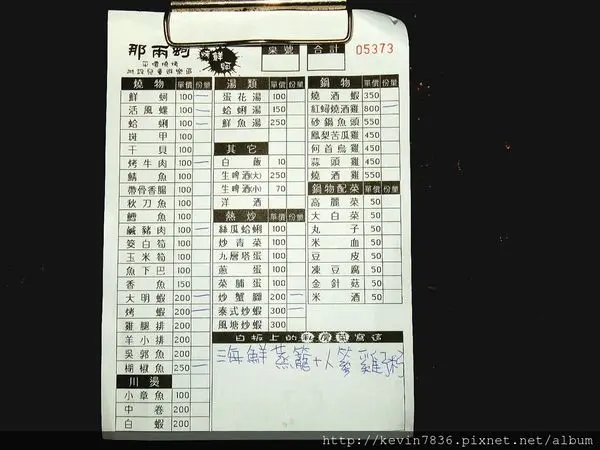 那兩蚵
平價燒烤
附設兒童遊樂區
桌號 合計 05373
燒物 單價 份量
鮮蚵 100 一
活風螺 100 一
蛤蜊 100 一
斑甲 100
干貝 100
烤牛肉 100 一
鯖魚 100
帶骨香腸 100
秋刀魚 100
鱈魚 100
鹹豬肉 100 一
筊白筍 100
玉米筍 100
魚下巴 100
香魚 150
大明蝦 200 一
烤蝦 200 一
雞腿排 200
羊小排 200
吳郭魚 200
椒魚 250 一
川燙
小章魚 100
中卷 200
白蝦 200
湯類 單價 份量
蛋花湯 100
蛤蜊湯 150
鮮魚湯 250
其它
白飯 10
生啤酒(大) 250
生啤酒(小) 70
洋酒
熱炒 單價 份量
絲瓜蛤蜊 100
炒青菜 100
九層塔蛋 100
煎蛋 100
菜脯蛋 100
炒蟹腳 200 一
泰式炒蝦 300 一
風塘炒蝦 300
鍋物 單價 份量
燒酒蝦 350
紅蟳燒酒雞 800 一
砂鍋魚頭 550
鳳梨苦瓜雞 450
何首烏雞 450
蒜頭雞 450
燒酒雞 550
鍋物配菜 單價 份量
高麗菜 50
大白菜 50
丸子 50
米血 50
豆皮 50
凍豆腐 50
金針菇 50
米酒 50
白板上的私房菜寫這
海鮮蒸籠+人蔘雞粥
http://kevin7836.pixnet.net/album